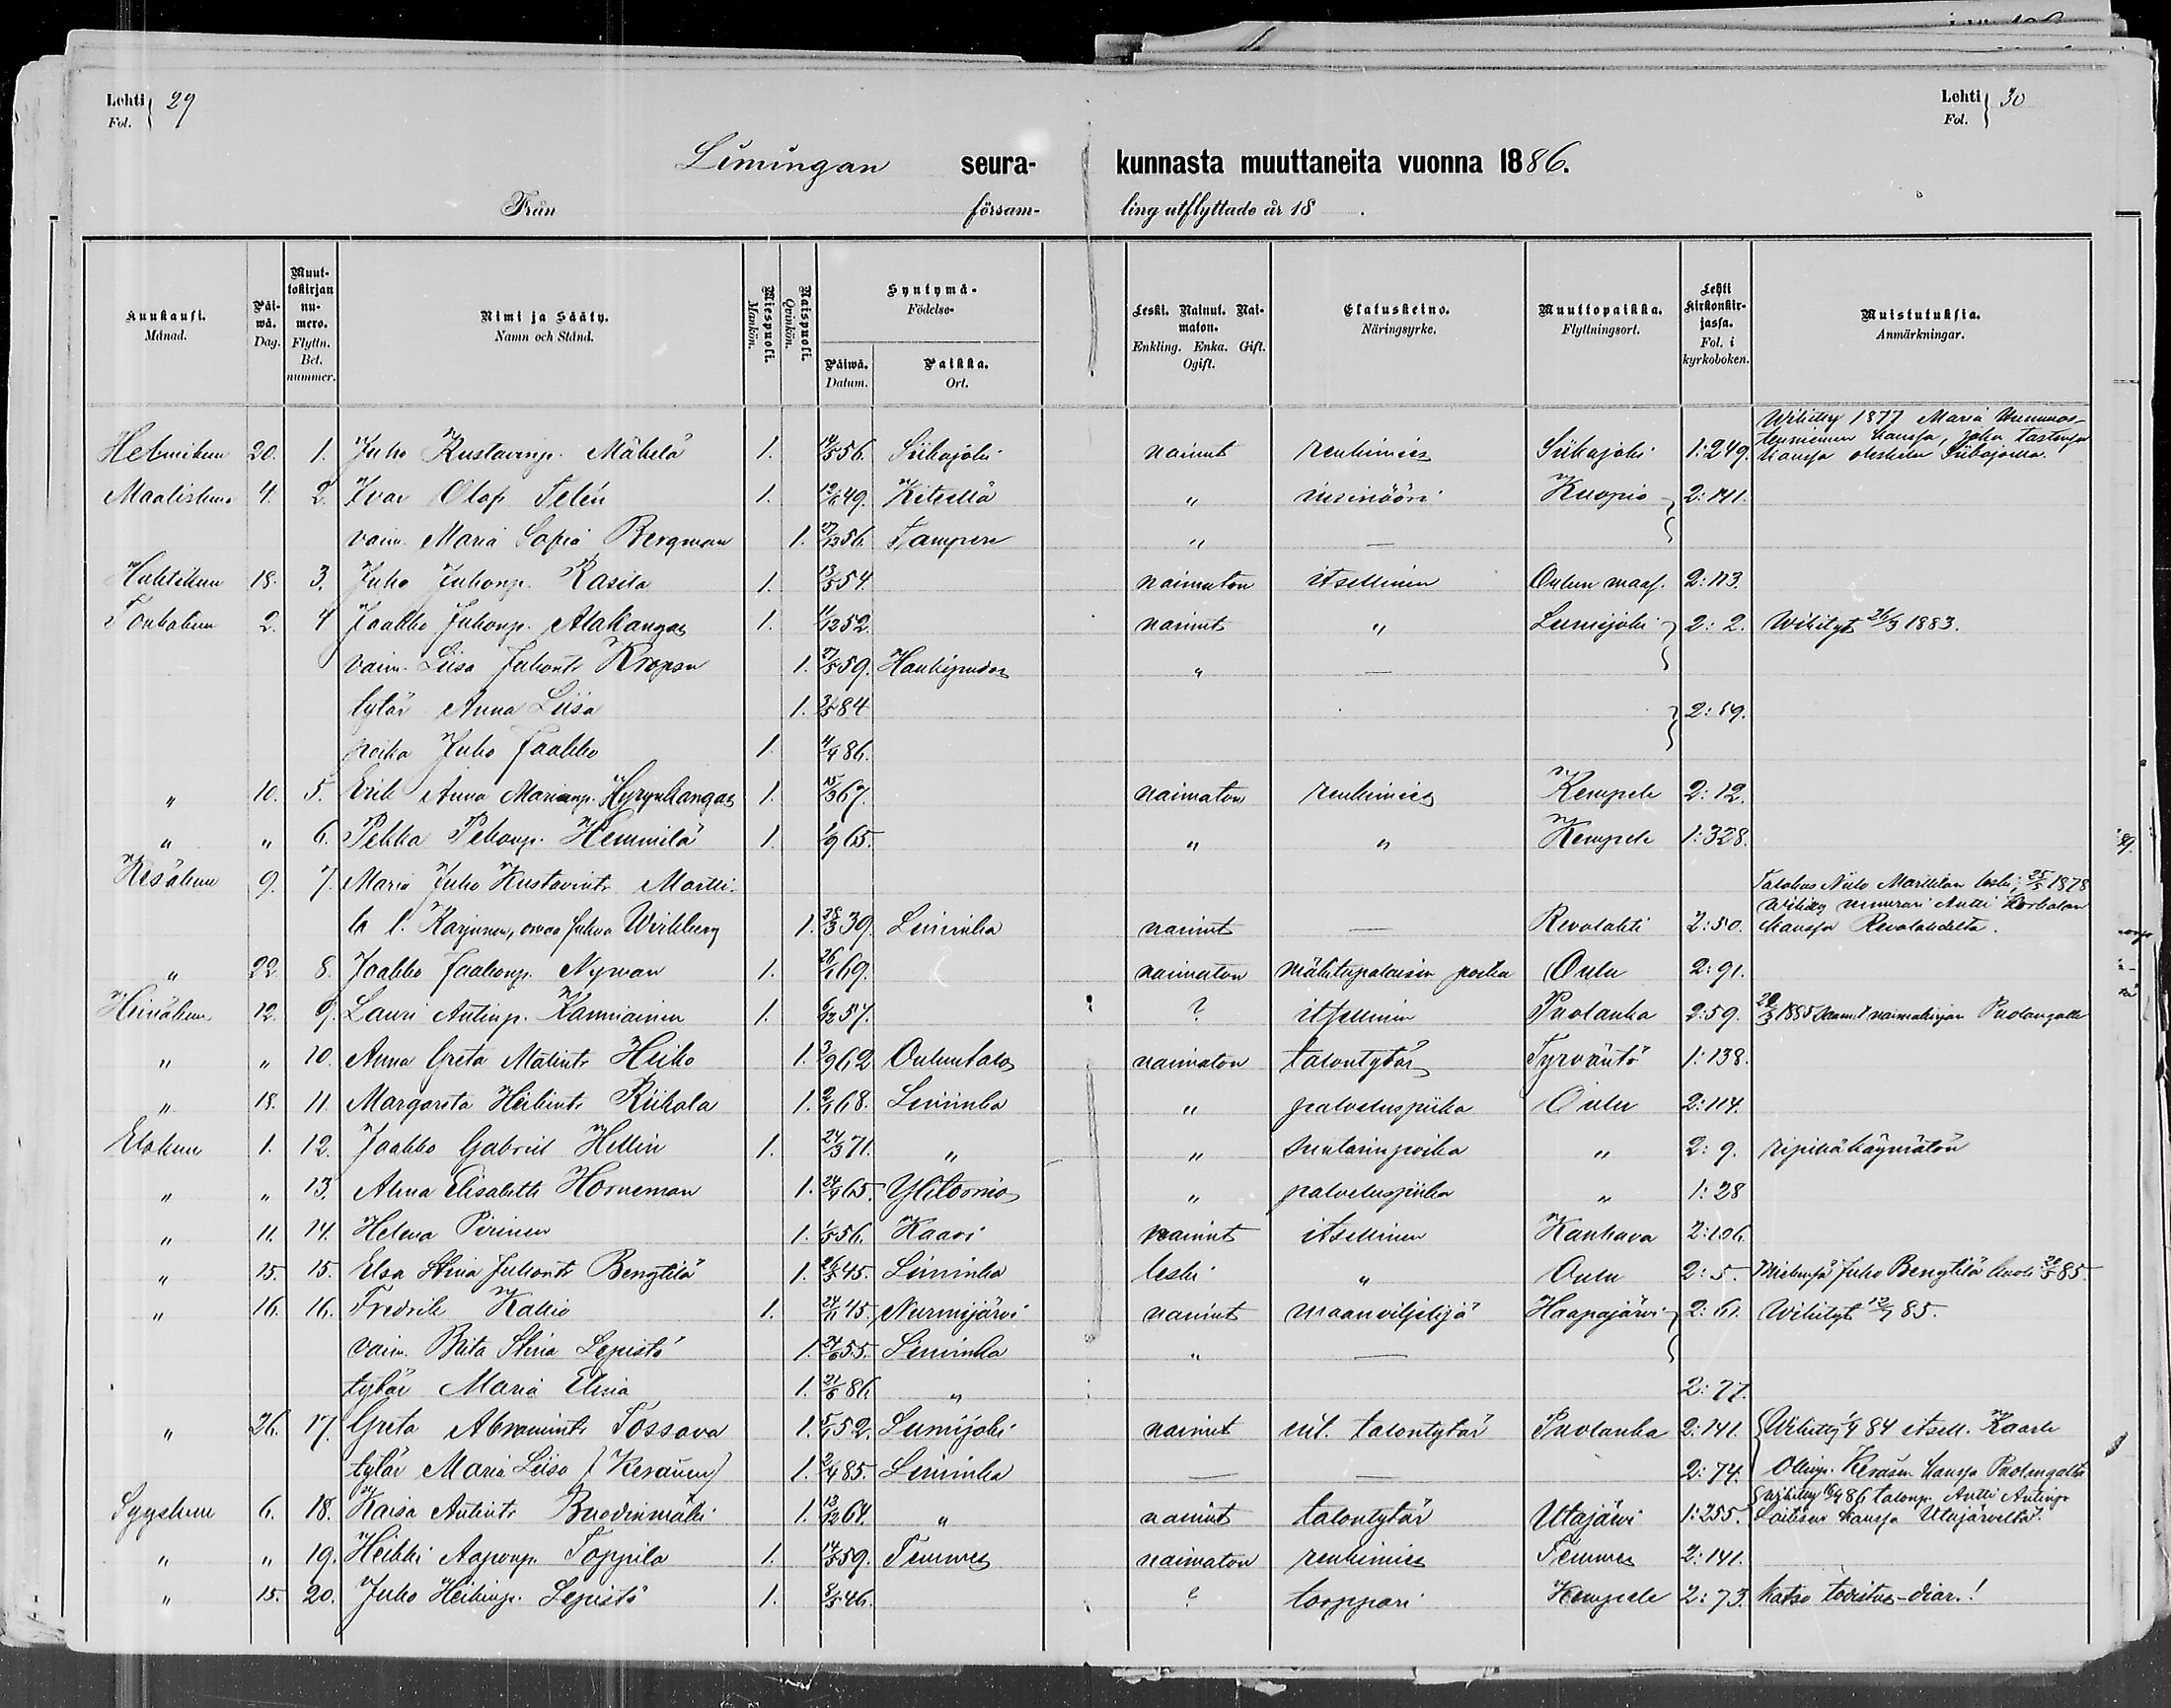 Lehti 29
Fol.
Lehti 30
Fol.
Limingan seura- kunnasta muuttaneita vuonna 1886.
Från försam- ling utflyttade år 18 .
Kuukausi. Månad. Päi-wä. Dag. Muut-tokirjan nu-mero. Flyttn. Bet. nummer. Nimi ja Sääty. Namn och Stånd. Miespuoli. Mankön. Naispuoli. Qvinkön. Syntymä- Födelse- Päiwä. Datum. Paikka. Ort. Leski. Nainut. Nai-maton. Enkling. Enka. Gift. Ogift. Elatuskeino. Näringsyrke. Muuttopaikka. Flyttningsort. Lehti kirkonkir-jassa. Fol. i kyrkoboken. Muistutuksia. Anmärkningar.
Wihitty 1877 Maria
kanssa, joka
Helmikuu 20. 1. Juho Kustaanp. Mäkelä 1. 56. Siikajoki nainut renkimies Siikajoki 1:249. kanssa oleskelee Siikajoella.
Maalisku 4. 2. Ivar Olof Telén 1. 49. Kiteellä " insinööri Kuopio 2:141.
vaim. Maria Sofia Bergman 1. 27/12 56. Tampere " —
Huhtikuu 18. 3. Juho Juhonp. Rasila 1. 13/5 54. naimaton itsellinen Oulun maas. 2:113.
Toukokuu 2. 4 Jaakko Juhonp. Alakangas 1. 52. nainut " Lumijoki 2:2. Wihityt 26/3 1883.
vaim. Liisa Juhontr Kropsu 1. 27/5 59. Haukipudas " —
tytär Anna Liisa 1. 84 2:19.
poika Juho Jaakko 1. 86.
" 10. 5. Erik Anna Marianp. Hyrynkangas 1. 15/3 67. naimaton renkimies Kempele 2:12.
" " 6. Pekka Pekanp. Hemmilä 1. 1/9 65. " " Kempele 1:328.
Kesäkuu 9. 7. Maria Juho Kustavintr Martti- Talokas Niilo Marttilan leski; 25/5 1878
k l. Karjunen, omaa sukua Wirkberg 1. 28/3 39. Liminka nainut — Revolahti 2:50. Wihitty muurari Antti Korkalan kanssa Revolahdelta.
" 22 8. Jaakko Jaakonp. Nyman 1. 26/1 69. naimaton mäkitupalaisen poika Oulu 2:91.
Heinäkuu 12. 9. Lauri Antinp. Kanniainen 1. 6/12 57. ? itsellinen Puolanka 2:59. 1885 naimakirjan Puolangalle
" " 10. Anna Greta Matintr Heiko 1. 3/9 62 Oulunsalo naimaton talontytär Tyrväntö 1:138.
" 18. 11. Margareta Heikintr Riikola 1. 68. Liminka " palveluspiika Oulu 2:114.
Elokuu 1. 12. Jaakko Gabriel Hellin 1. 24/3 71. " " suutarinpoika " 2:9. ripillä käymätön
" " 13. Alma Elisabeth Horneman 1. 24/4 65. Ylitornio " palveluspiika " 1:28
" 11. 14. Helena Pirinen 1. 1/5 56. Kaavi nainut itsellinen Kauhava 2:106.
" 15. 15. Elsa Stina Juhontr Bengtilä 1. 26/3 45. Liminka leski " Oulu 2:5. Miehensä Juho Bengtilä kuoli 85.
" 16. 16. Fredrik Kallio 1. 24/1 45. Nurmijärvi nainut maanviljelijä Haapajärvi 2:61. Wihityt 12/7 85.
vaim. Brita Stina Lepistö 1. 55. Liminka " —
tytär Maria Elina 1. 21/6 86. " 2:77.
" 26. 17. Greta Abramintr Tossava 1. 52. Lumijoki nainut ent. talontytär Puolanka 2:141. Wihitty 84 itsell. Kaarle
tytär Maria Liisa (Keränen) 1. 2/4 85. Liminka — — 2:74. Ollinp. Keräsen kanssa Puolangalta
Syyskuu 6. 18. Kaisa Antintr Buodinmäki 1. 64. " nainut talontytär Utajärvi 1:255. Wihitty 86 talonp. Antti Antinp. Laitisen kanssa Utajärveltä.
" " 19. Heikki Aaponp. Toppila 1. 14/5 59. Temmes naimaton renkimies Temmes 2:141.
" 15. 20. Juho Heikinp. Lepistö 1. 8/5 46. ? torppari Kempele 2:73. katso todistus-diar.!